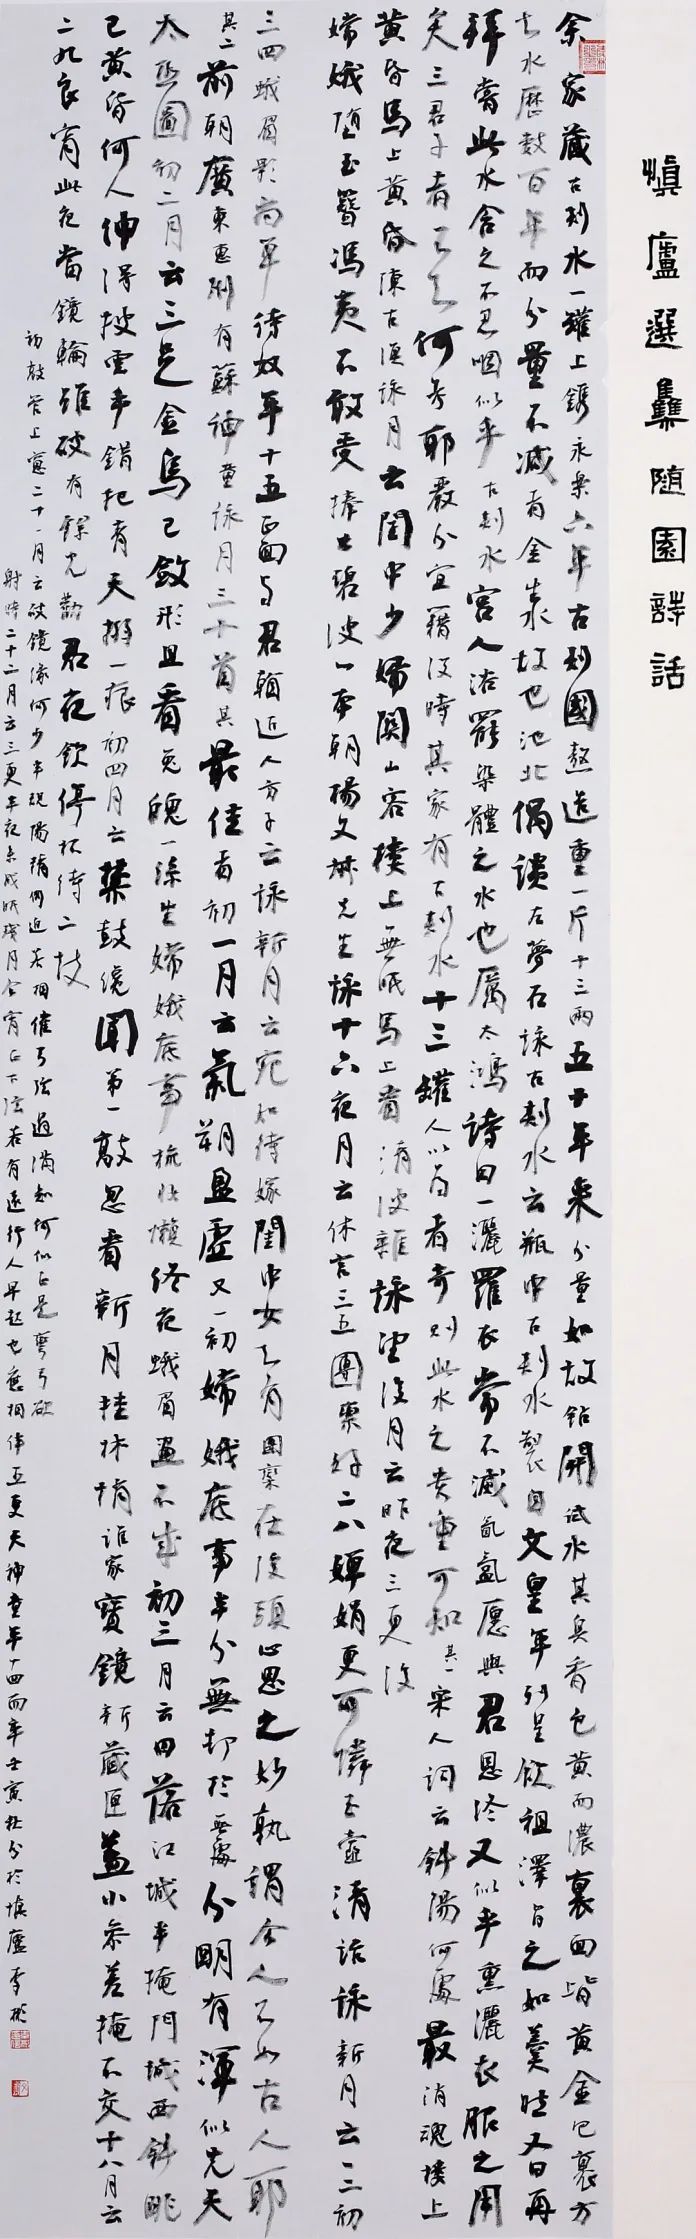 慎廬選集隨園詩話
余家藏古剌水一罐上鐫永樂六年古剌國熬造重一斤十三兩五十年來分量如故鉆開試水其臭香色黃而濃裏面皆黃金包裹方
知水歷數百年而分量不減者金生水故也池北偶談左夢石詠古剌水云瓶中古剌水製自文皇年列皇飲祖澤旨之如羹然又曰再
拜嘗此水含之不忍咽似乎古剌水宮人浴罷染體之水也厲太鴻詩曰一灑羅衣常不滅氤氳愿與君恩終又似乎熏灑衣服之用
矣三君子者不知何考耶嚴分宜籍沒時其家有古剌水十三罐人以為奇則此水之貴重可知其一宋人詞云斜陽何處最消魂樓上
黃昏馬上黃昏陳古漁詠月云閨中少婦關山客樓上無眠馬上看清波雜詠望後月云昨夜三更後
嫦娥墮玉簪馮夷不敢受捧出碧波心本朝楊文叔先生詠十六夜月云休言三五團欒好二八嬋娟更可憐玉壺清話詠新月云一二初
三四蛾眉影尚單待奴年十五正面與君看近人方子云詠新月云宛如待嫁閨中女知有團欒在後頭心思之妙孰謂今人不如古人耶
其二前朝廣東惠州有蘇神童詠月三十首其最佳者初一月云氣朔盈虛又一初嫦娥底事半分無却於無處分明有渾似先天
太極圖初二月云三足金烏已斂形且看兔魄一絲生嫦娥底事梳妝懶終夜蛾眉畫不成初三月云日落江城半掩門城西斜眺
已黃昏何人伸得披雲手錯把青天搯一痕初四月云禁鼓纔聞第一敲忽看新月掛林梢誰家寶鏡新藏匣蓋小參差掩不交十八月云
二九良宵此夜當鏡輪雖破有餘光勸君夜飲停杯待二鼓
初敲管上窗二十一月云破鏡緣何少半規陽精何迫若相催弓弦過滿知何似正是彎弓欲
射時二十二月云三更半夜未成眠殘月今宵正下弦若有遠行人早起也應相伴五更天神童年十四而卒壬寅秋分於慎廬李彬